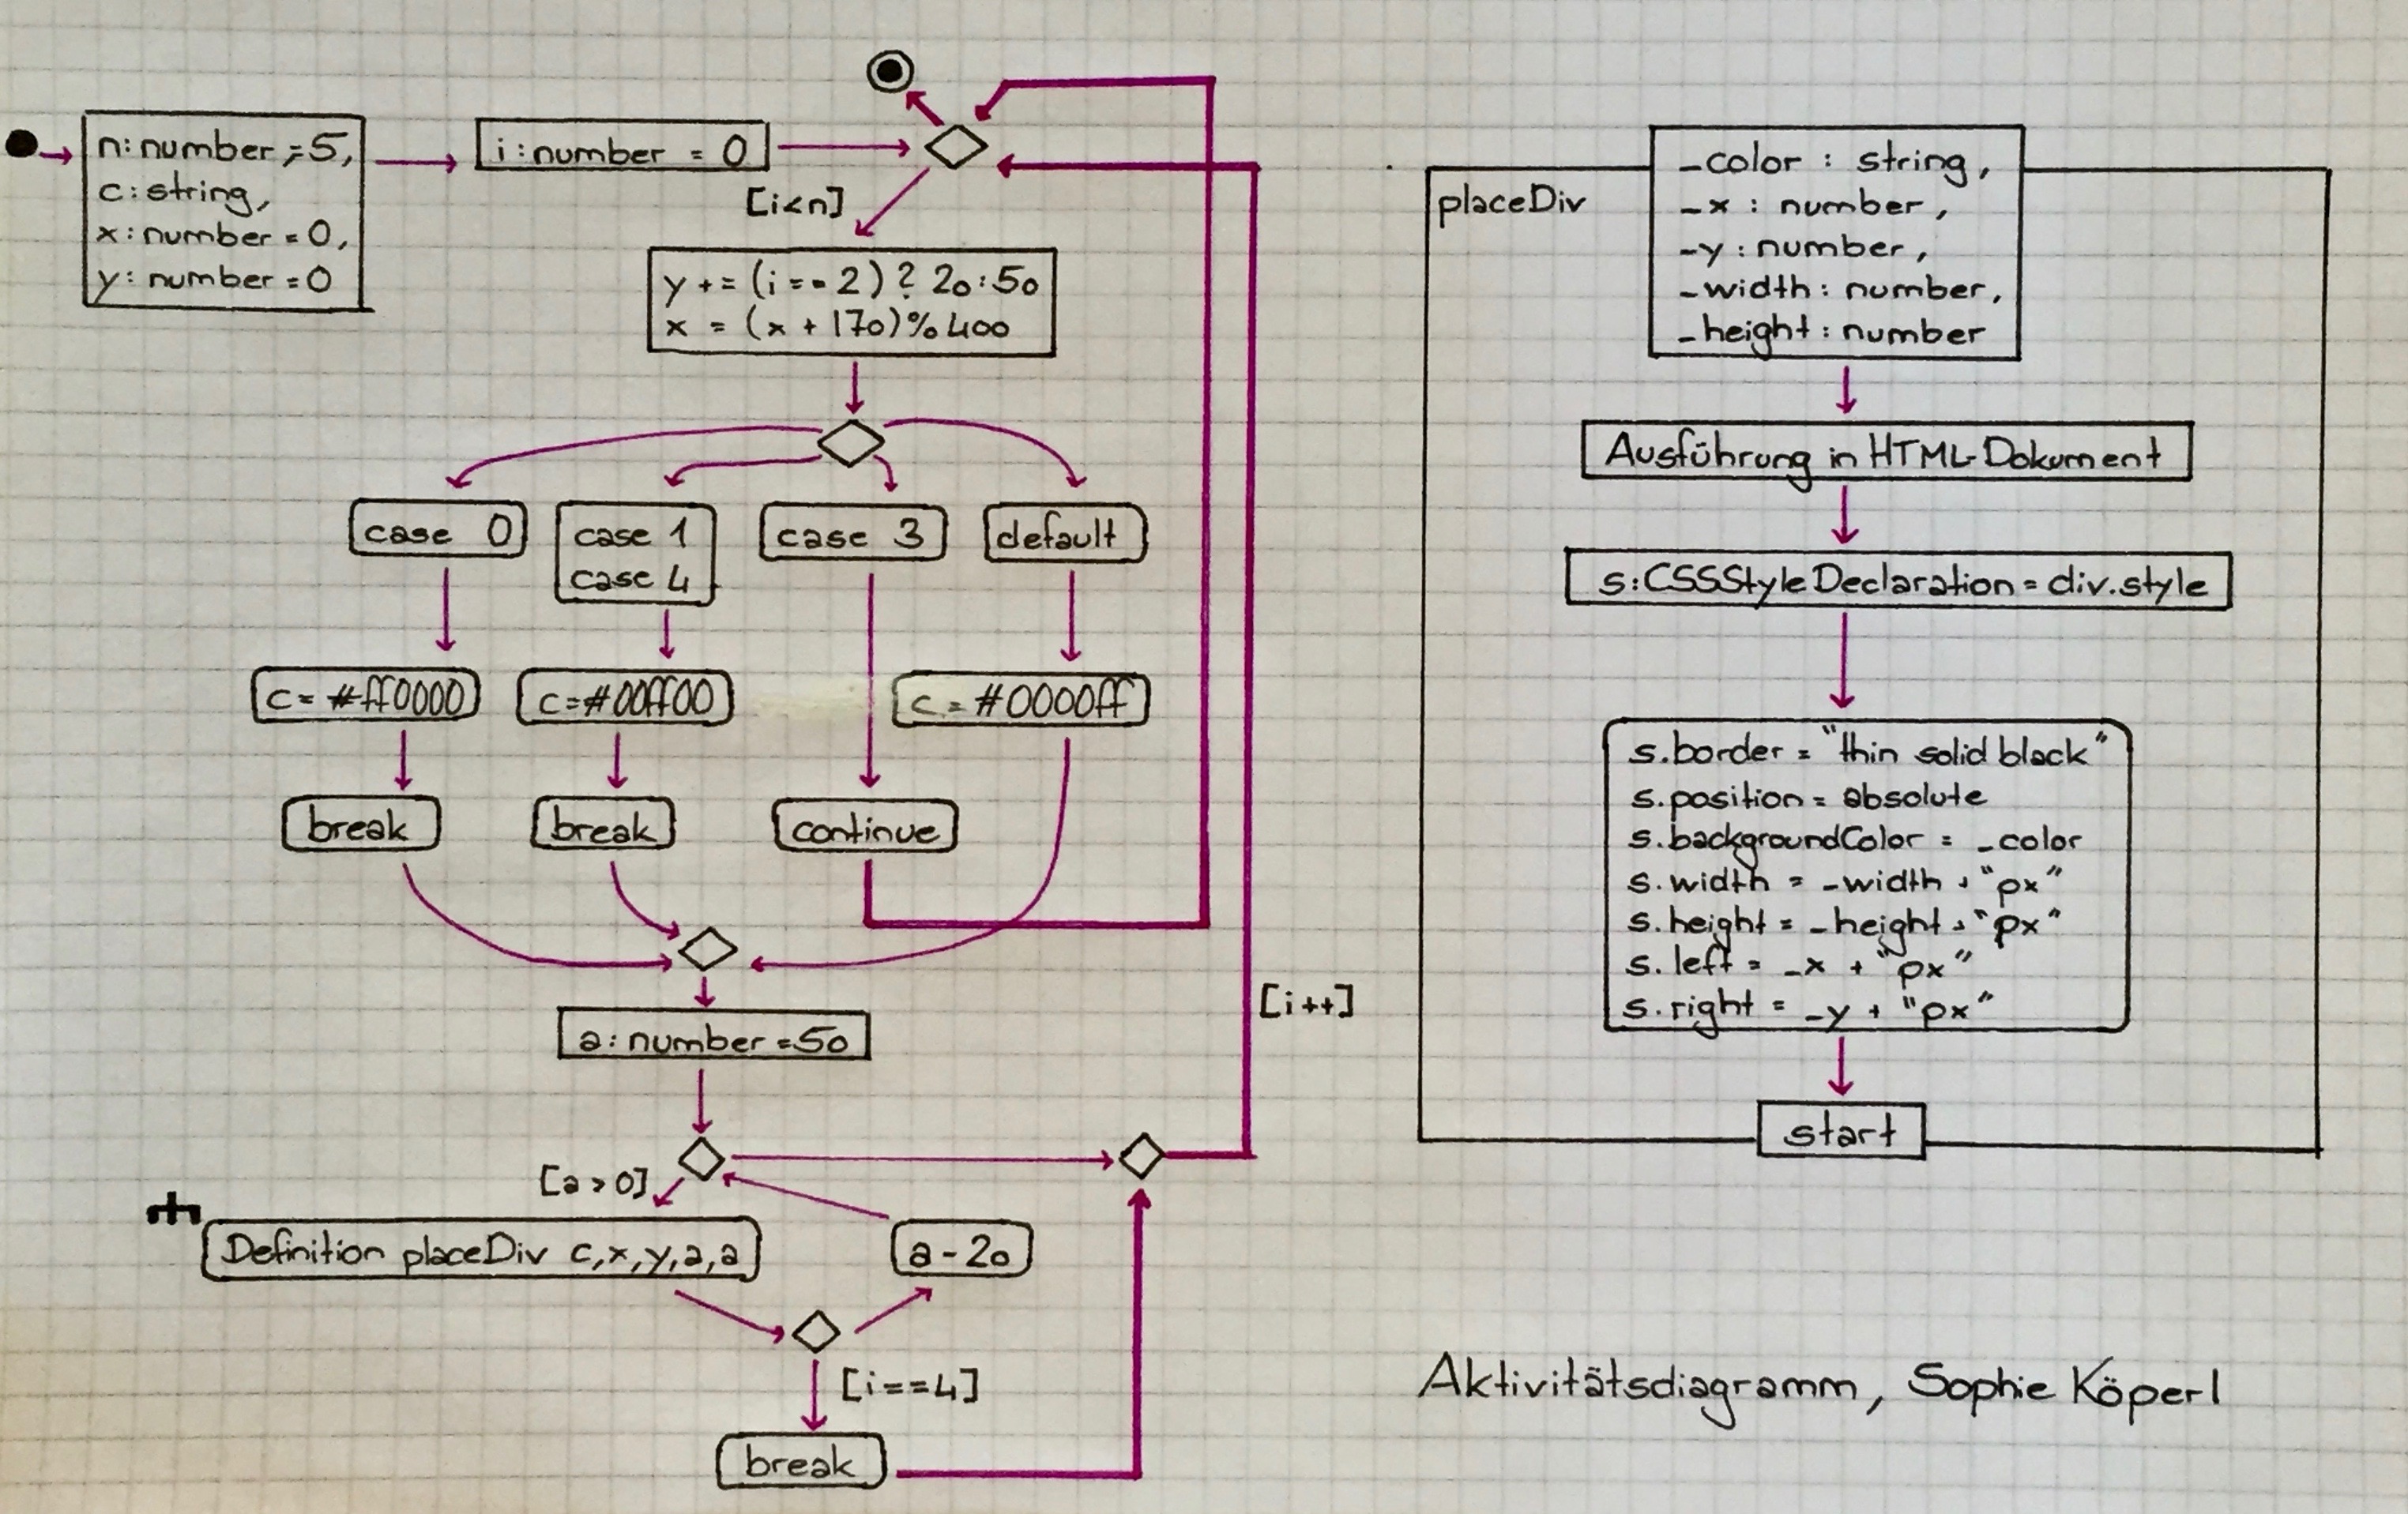 n:number,=5,
c:string,
x:number=0,
y:number=0
i:number = 0
[i<n]
y += (i == 2) ? 20:50
x = (x + 170)%400
case 0
case 1
case 4
case 3
default
c= #ff0000
c=#00ff00
c = #0000ff
break
break
continue
a:number=50
[i++]
[a>0]
Definition placeDiv c,x,y,a,a
a-20
[i==4]
break
placeDiv
_color : string,
_x : number,
_y : number,
_width: number,
_height: number
Ausführung in HTML-Dokument
s:CSSStyleDeclaration = div.style
s.border = "thin solid black"
s.position = absolute
s.backgroundColor = _color
s.width = _width + "px"
s.height = _height + "px"
s.left = _x + "px"
s.right = _y + "px"
start
Aktivitätsdiagramm, Sophie Köperl